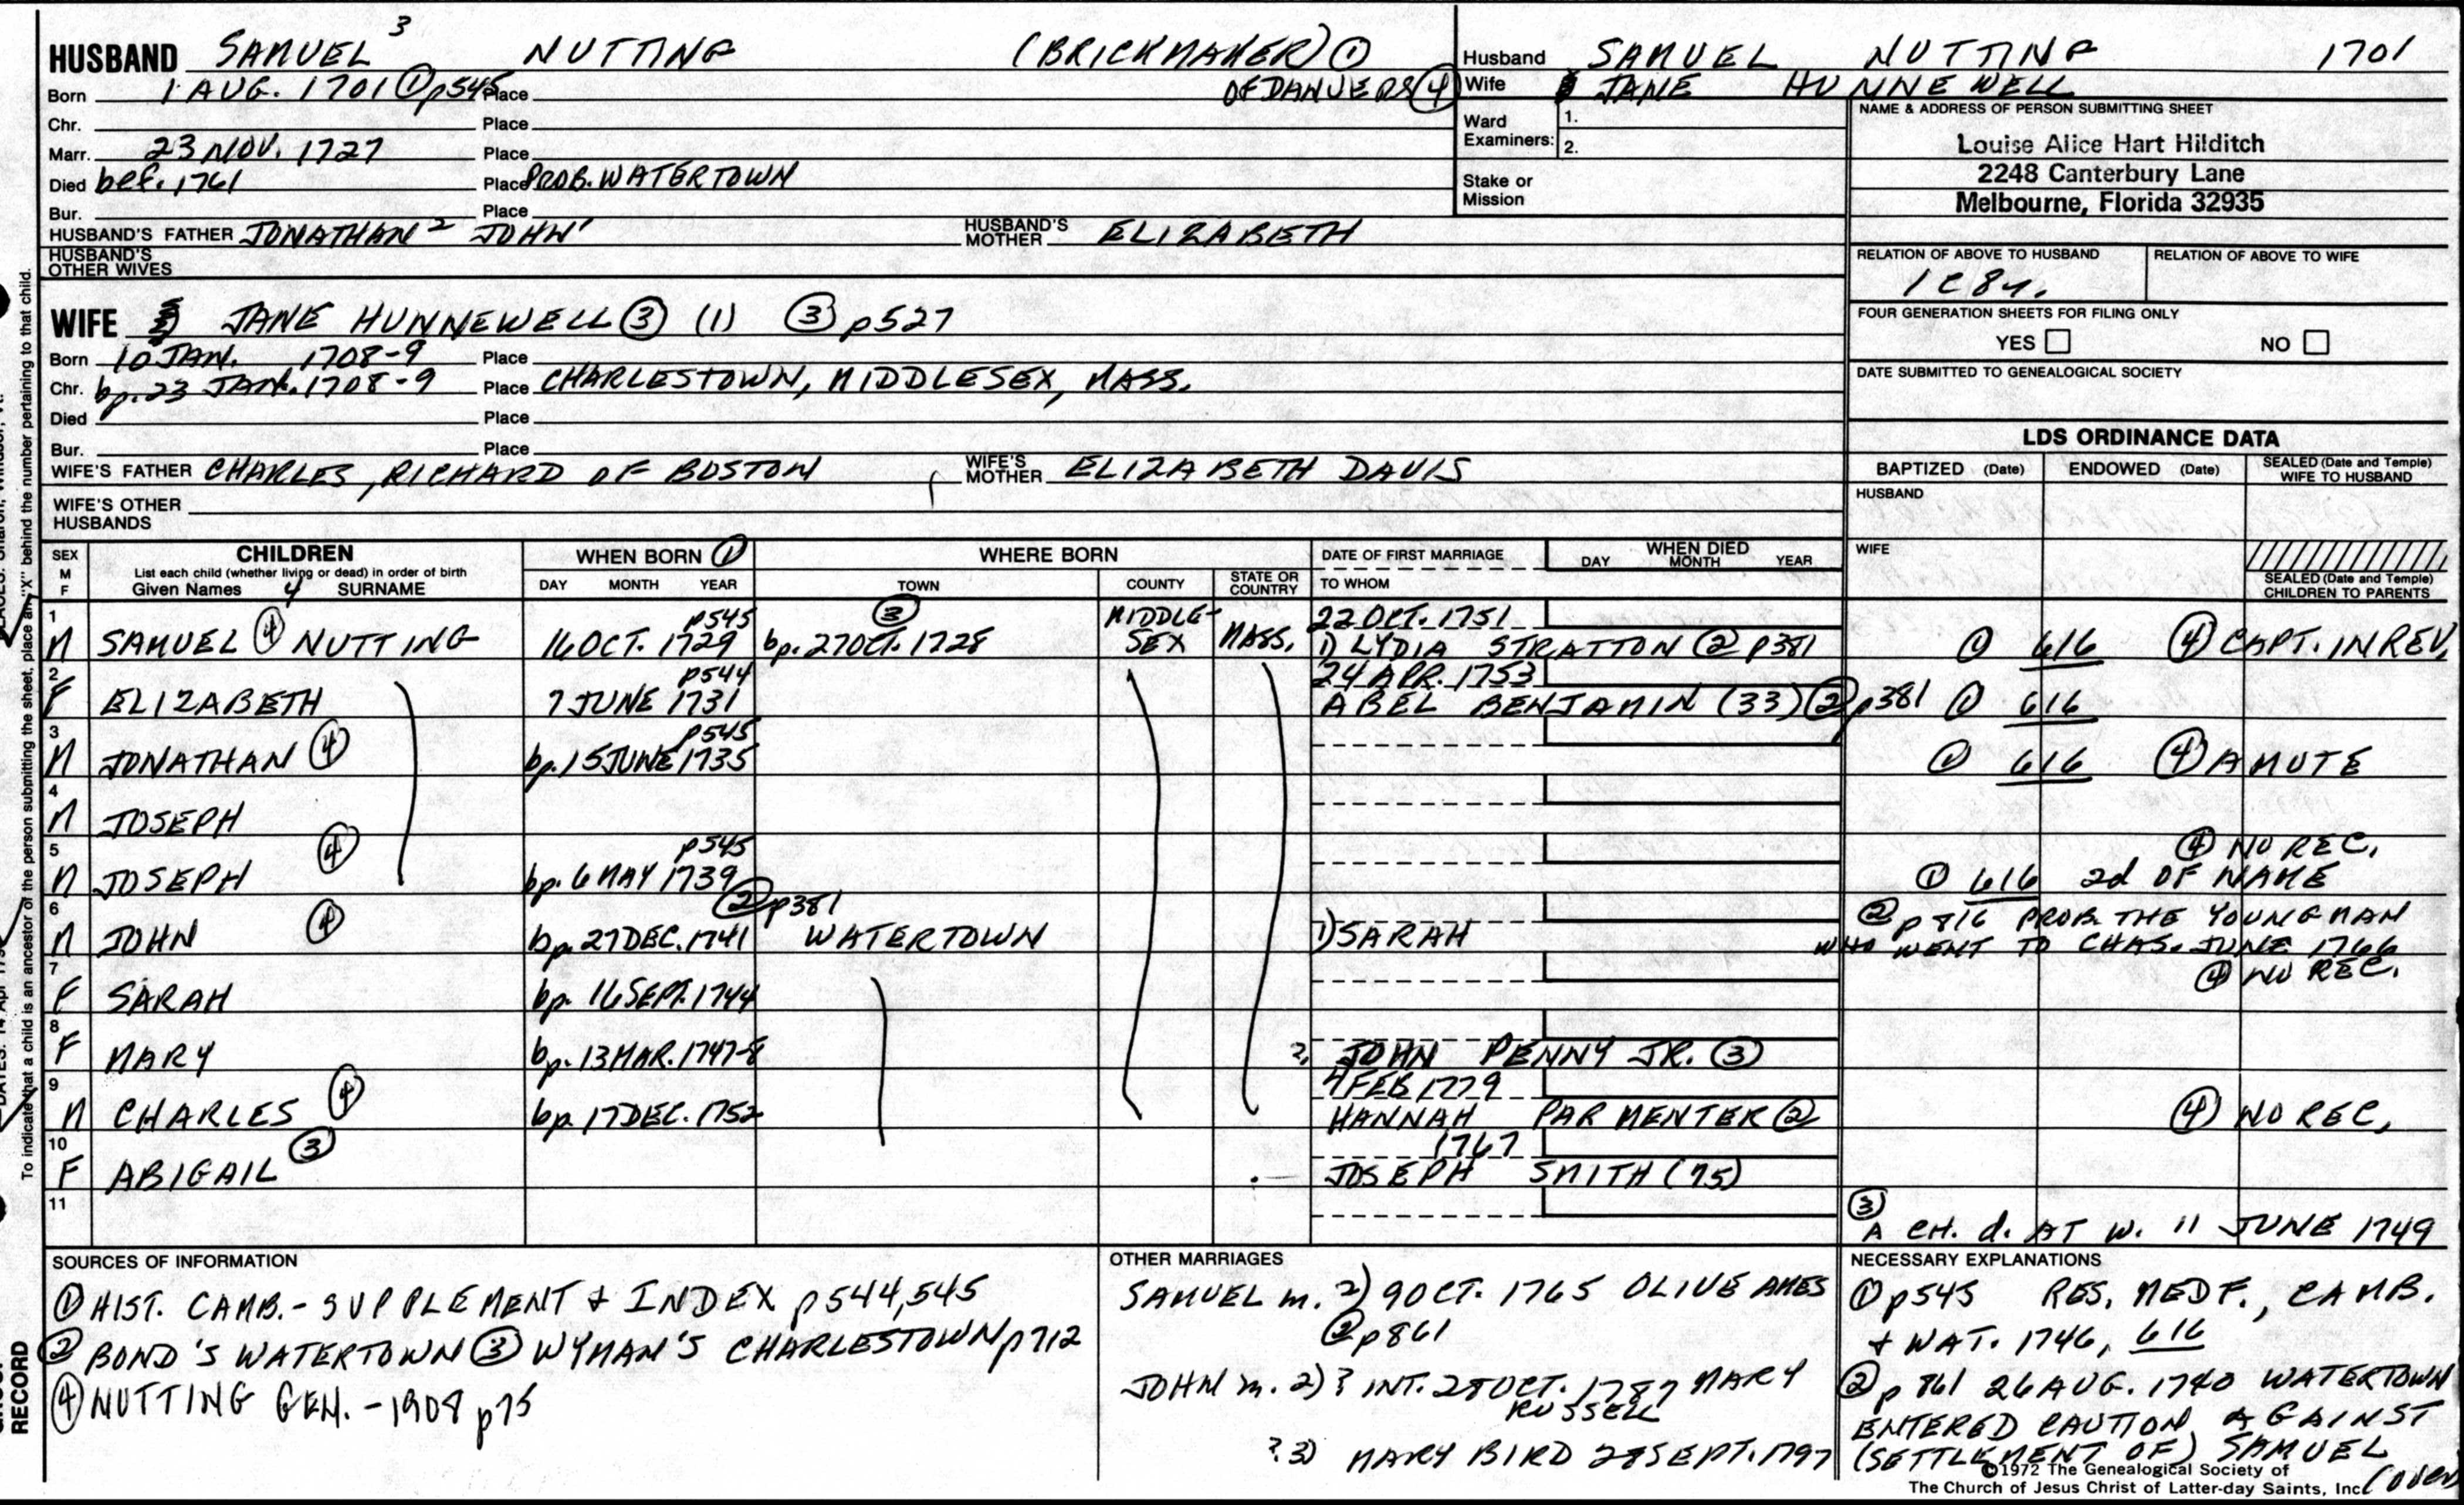 HUSBAND SAMUEL 3 NUTTING (BRICKMAKER) ①
Born 1 AUG. 1701 ① p545 Place OF DANVERS ④
Chr. Place
Marr. 23 NOV. 1727 Place
Died bef. 1761 Place PROB. WATERTOWN
Bur. Place
HUSBAND'S FATHER JONATHAN 2 JOHN 1 HUSBAND'S MOTHER ELIZABETH
HUSBAND'S OTHER WIVES
Husband SAMUEL NUTTING 1701
Wife JANE HUNNEWELL
Ward Examiners: 1.
2.
Stake or Mission
NAME & ADDRESS OF PERSON SUBMITTING SHEET
Louise Alice Hart Hilditch
2248 Canterbury Lane
Melbourne, Florida 32935
RELATION OF ABOVE TO HUSBAND RELATION OF ABOVE TO WIFE
1C8r.
FOUR GENERATION SHEETS FOR FILING ONLY
YES NO
DATE SUBMITTED TO GENEALOGICAL SOCIETY
WIFE JANE HUNNEWELL ③ (1) ③ p527
Born 10 JAN. 1708-9 Place
Chr. bp. 23 JAN. 1708-9 Place CHARLESTOWN, MIDDLESEX, MASS.
Died Place
Bur. Place
WIFE'S FATHER CHARLES, RICHARD OF BOSTON WIFE'S MOTHER ELIZABETH DAVIS
WIFE'S OTHER HUSBANDS
LDS ORDINANCE DATA
BAPTIZED (Date) ENDOWED (Date) SEALED (Date and Temple) WIFE TO HUSBAND
HUSBAND
WIFE
SEALED (Date and Temple) CHILDREN TO PARENTS
SEX M F CHILDREN List each child (whether living or dead) in order of birth Given Names 4 SURNAME
WHEN BORN ① DAY MONTH YEAR
WHERE BORN TOWN COUNTY STATE OR COUNTRY
DATE OF FIRST MARRIAGE TO WHOM
WHEN DIED DAY MONTH YEAR
1 M SAMUEL ④ NUTTING p545 16 OCT. 1729 ③ bp. 27 OCT. 1728 MIDDLESEX MASS. 22 OCT. 1751 1) LYDIA STRATTON ② p381 ① 616 ④ CAPT. IN REV.
2 F ELIZABETH p544 7 JUNE 1731 24 APR. 1753 ABEL BENJAMIN (33) ② p381 ① 616
3 M JONATHAN ④ p545 bp. 15 JUNE 1735 ① 616 ④ A MUTE
4 M JOSEPH
5 M JOSEPH ④ p545 bp. 6 MAY 1739 ④ NO REC. ① 616 2d OF NAME
6 M JOHN ④ ② p381 bp. 27 DEC. 1741 WATERTOWN 1) SARAH ② p816 PROB. THE YOUNG MAN
WHO WENT TO CHAS. JUNE 1766
④ NO REC.
7 F SARAH bp. 16 SEPT. 1744
8 F MARY bp. 13 MAR. 1747-8 ? JOHN PENNY JR. ③
9 M CHARLES ④ bp. 17 DEC. 1752 4 FEB 1779 HANNAH PARMENTER ② ④ NO REC.
10 F ABIGAIL ③ 1767 JOSEPH SMITH (75)
11 ③ A CH. d. AT W. 11 JUNE 1749
SOURCES OF INFORMATION
① HIST. CAMB. - SUPPLEMENT & INDEX p544,545
② BOND'S WATERTOWN ③ WYMAN'S CHARLESTOWN p712
④ NUTTING GEN. - 1908 p75
OTHER MARRIAGES
SAMUEL m. 2) 9 OCT. 1765 OLIVE AMES
② p861
JOHN m. 2) ? INT. 28 OCT. 1787 MARY
RUSSELL
? 3) MARY BIRD 28 SEPT. 1797
NECESSARY EXPLANATIONS
① p545 RES. MEDF., CAMB.
& WAT. 1746, 616
② p 861 26 AUG. 1740 WATERTOWN
ENTERED CAUTION AGAINST
(SETTLEMENT OF) SAMUEL
(over)
©1972 The Genealogical Society of
The Church of Jesus Christ of Latter-day Saints, Inc.
To indicate that a child is an ancestor of the person submitting the sheet, place an "X" behind the number pertaining to that child.
RECORD